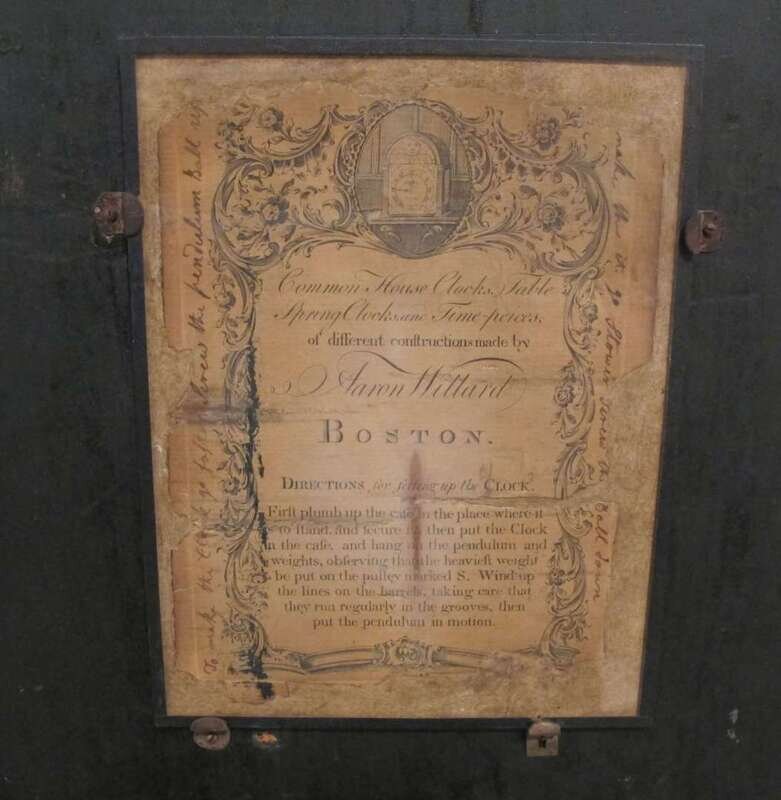 Common House Clocks, Table
Spring Clocks, and Time-peices,
of different conſtructions made by
Aaron Willard
BOSTON.
DIRECTIONS for ſetting up the CLOCK.
Firſt plumb up the caſe in the place where it
is to ſtand, and ſecure it, then put the Clock
in the caſe, and hang on the pendulum and
weights, obſerving that the heavieſt weight
be put on the pulley marked S. Wind up
the lines on the barrels, taking care that
they run regularly in the grooves, then
put the pendulum in motion.
To make the Clock go faster screw the pendulum Ball up
make it go slower screw Ball down